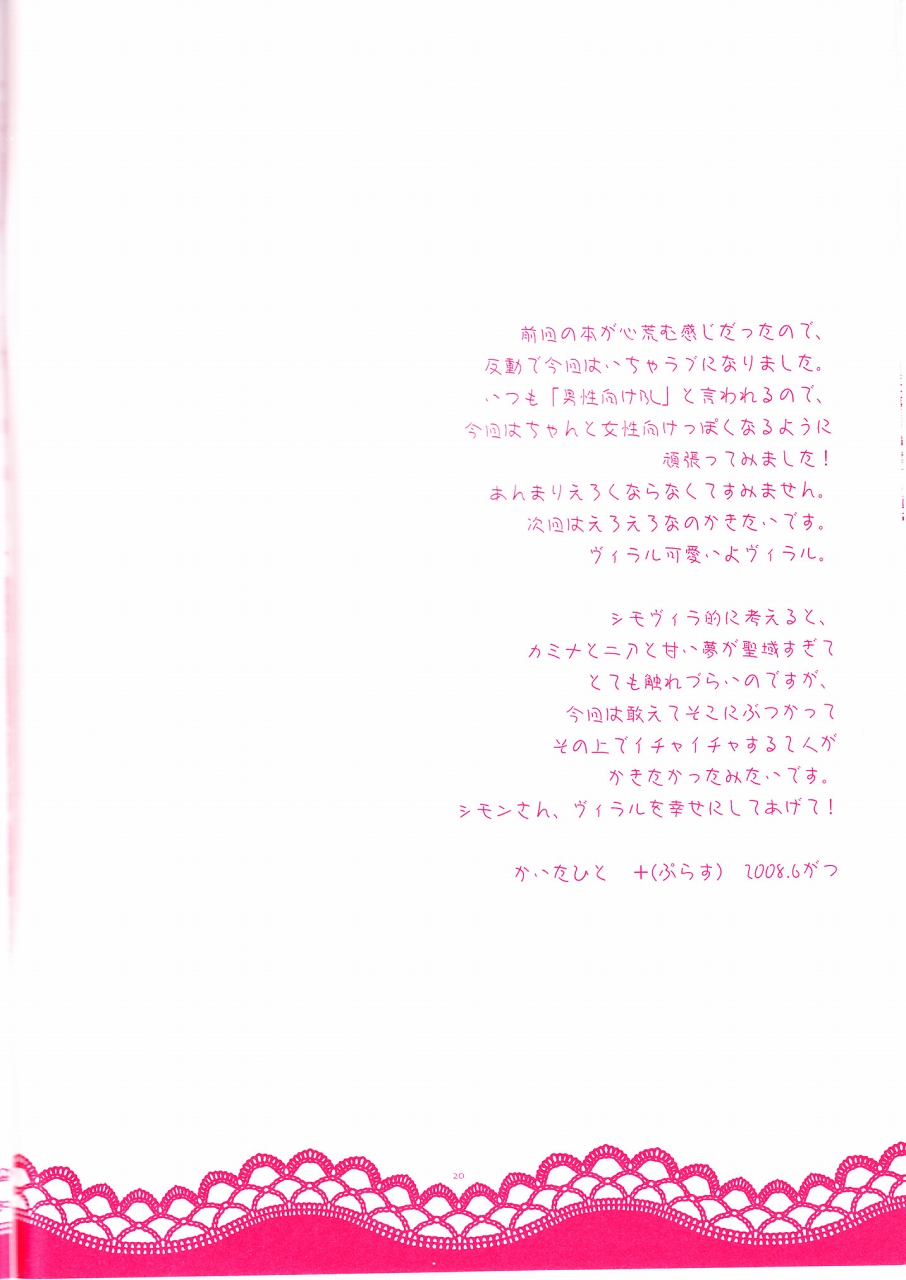 前回の本が心荒む感じだったので、
反動で今回はいちゃラブになりました。
いつも「男性向けBL」と言われるので、
今回はちゃんと女性向けっぽくなるように
頑張ってみました！
あんまりえろくならなくてすみません。
次回はえろえろなのかきたいです。
ヴィラル可愛いよヴィラル。
シモヴィラ的に考えると、
カミナとニアと甘い夢が聖域すぎて
とても触れづらいのですが、
今回は敢えてそこにぶつかって
その上でイチャイチャする2人が
かきたかったみたいです。
シモンさん、ヴィラルを幸せにしてあげて！
かいたひと　+(ぷらす)　2008.6がつ
20